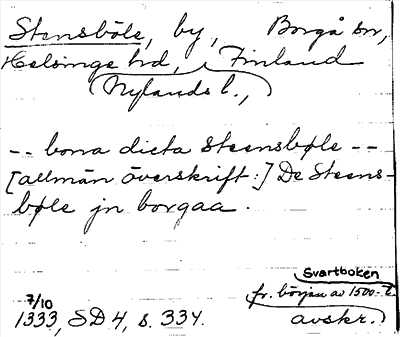 Stensböle, by, Borgå sn,
Helsinge hd, Finland
(Nylands l.,
-- bona dicta Steensbøle --
[allmän överskrift:] De Steens-
bøle jn borgaa.
Svartboken
fr. början av 1500-t.
7/10
1333, SD 4, s. 334. avskr.